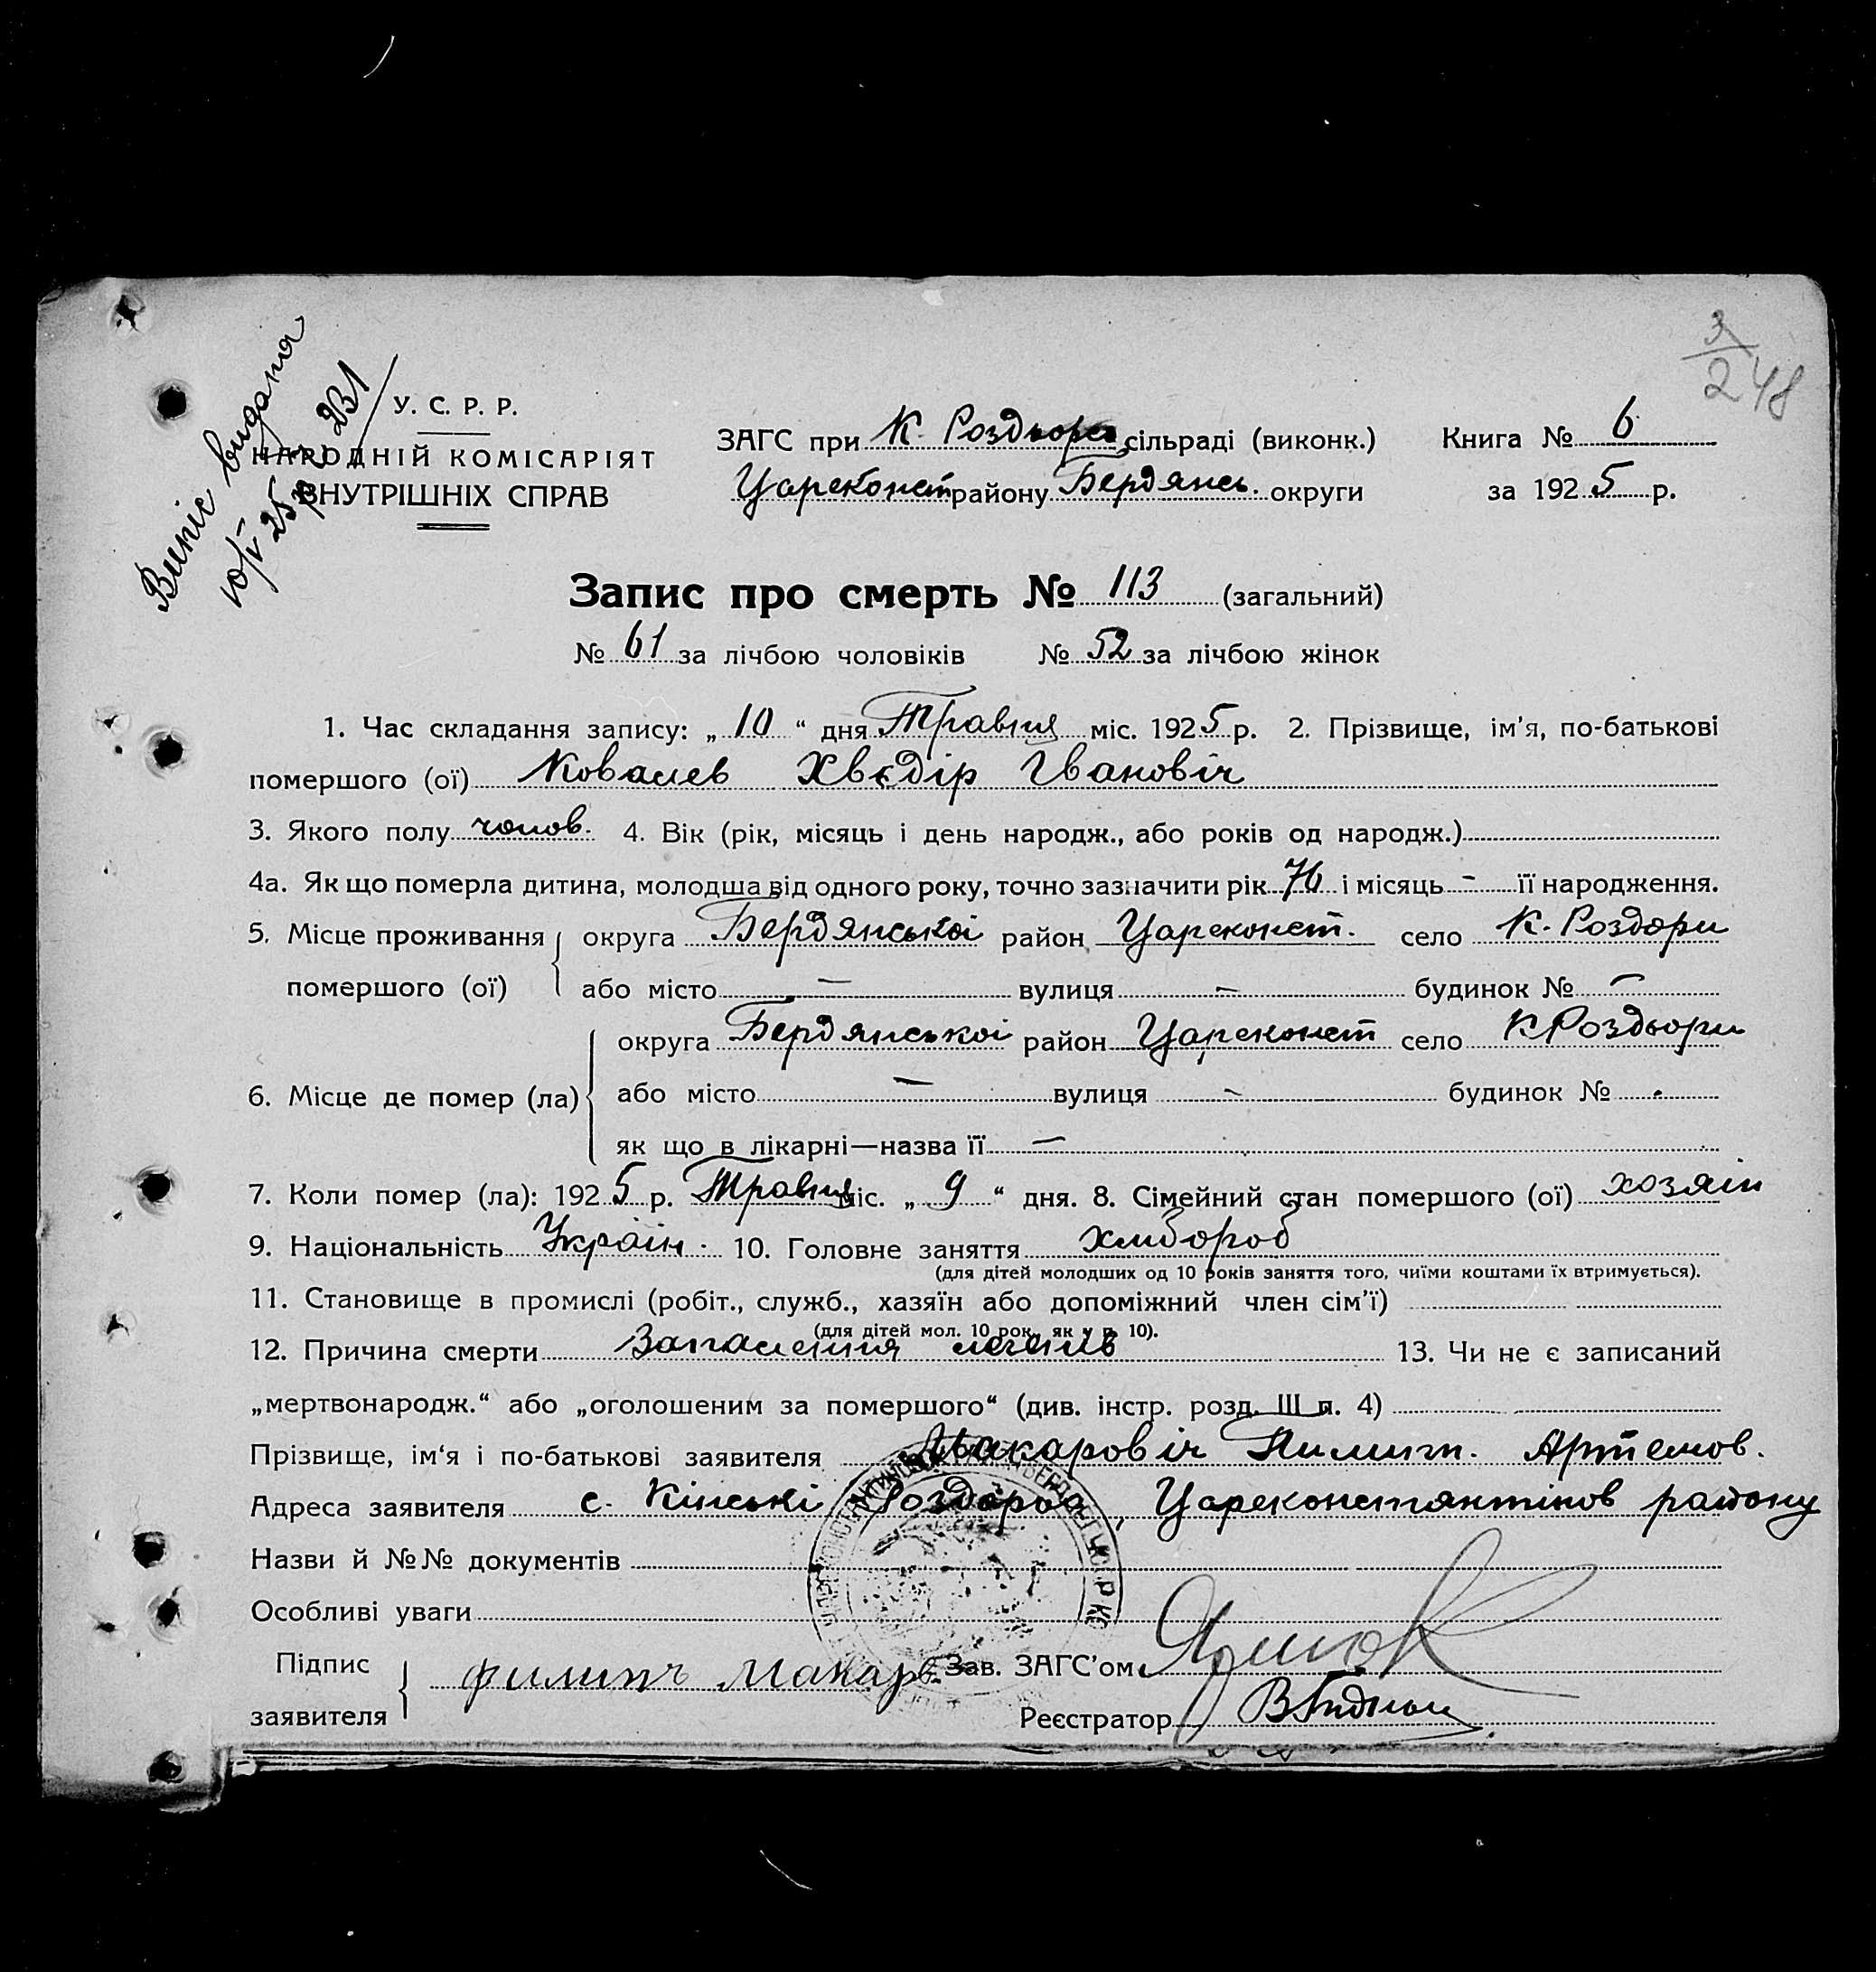 Випіс видана
10/V 25 р. № 231
3/248
У. С. Р. Р.
НАРОДНІЙ КОМІСАРІЯТ
ВНУТРІШНІХ СПРАВ
ЗАГС при К. Роздьори сільраді (виконк.) Книга № 6
Цареконст району Бердянсь. округи за 1925 р.
Запис про смерть № 113 (загальний)
№ 61 за лічбою чоловіків № 52 за лічбою жінок
1. Час складання запису: „ 10 “ дня Травня міс. 1925 р. 2. Прізвище, ім'я, по-батькові
помершого (ої) Ковалев Хведір Івановіч
3. Якого полу чолов. 4. Вік (рік, місяць і день народж., або років од народж.)
4а. Як що померла дитина, молодша від одного року, точно зазначити рік 76 і місяць - її народження.
5. Місце проживання помершого (ої) округа Бердянської район Цареконст. село К. Роздори
або місто — вулиця — будинок № —
6. Місце де помер (ла) округа Бердянської район Цареконст село К Роздьори
або місто — вулиця - будинок № .
як що в лікарні—назва її —
7. Коли помер (ла): 1925 р. Травня міс. „ 9 “ дня. 8. Сімейний стан помершого (ої) хозяін
9. Національність Украін. 10. Головне заняття хлібороб
(для дітей молодших од 10 років заняття того, чиїми коштами їх втримується).
11. Становище в промислі (робіт., служб., хазяїн або допоміжний член сім'ї)
(для дітей мол. 10 рок. як у п. 10).
12. Причина смерти Запаления легенів 13. Чи не є записаний
„мертвонародж.“ або „оголошеним за помершого“ (див. інстр. розд. III п. 4)
Прізвище, ім'я і по-батькові заявителя Макаровіч Пилип. Артемов.
Адреса заявителя с. Кінські Роздора, Цареконстянтінов району
Назви й №№ документів
Особливі уваги
Підпис заявителя Филипъ Макаров Зав. ЗАГС'ом
Реєстратор